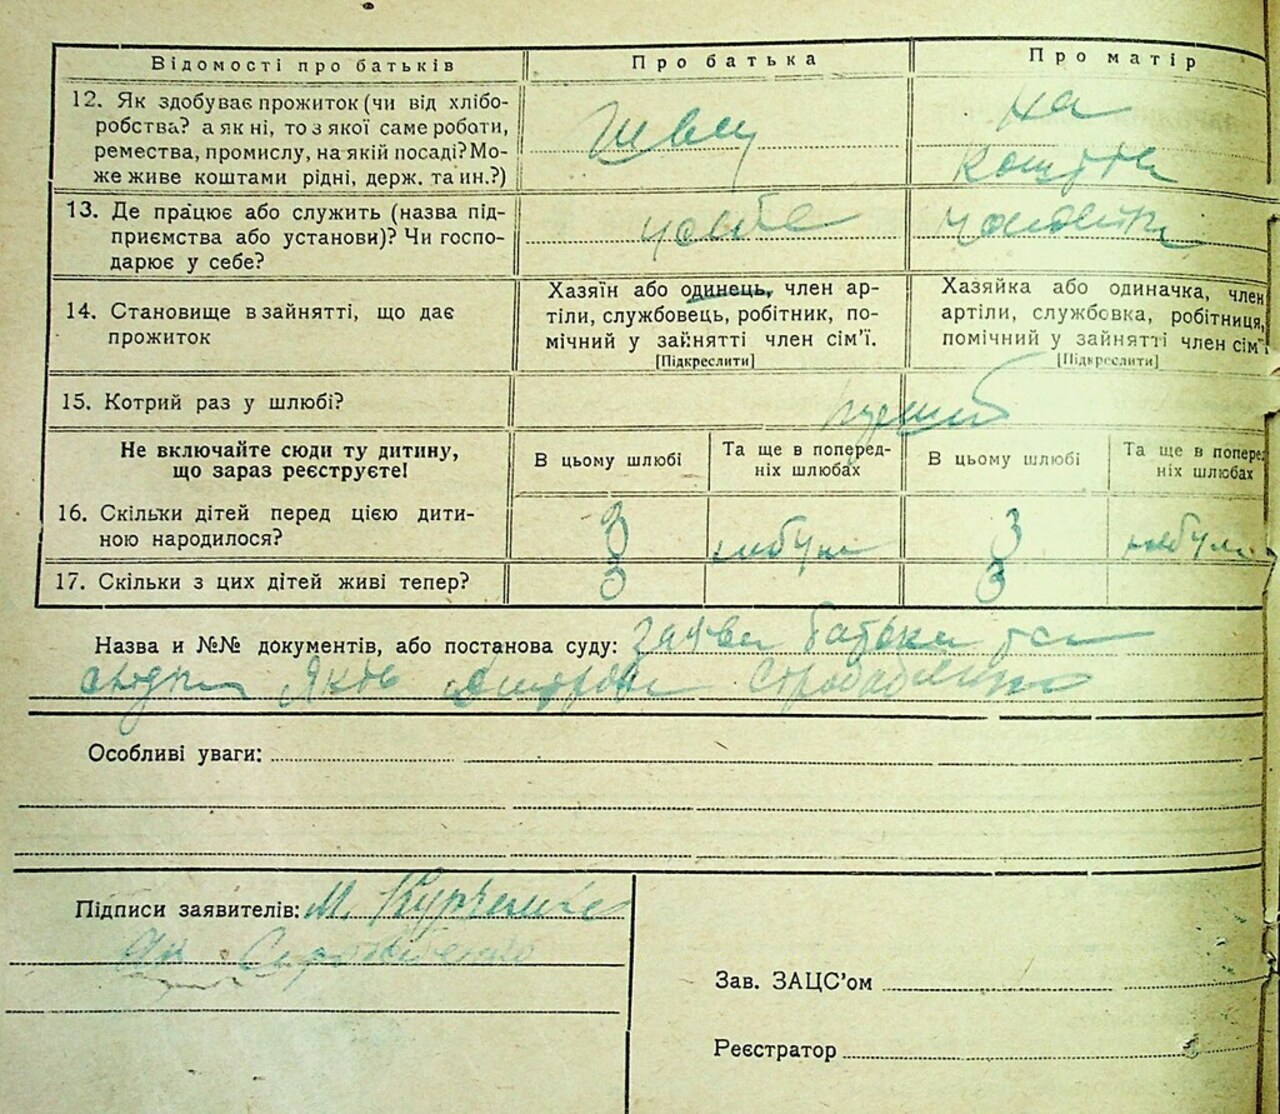 Відомості про батьків
Про батька
Про матір
12. Як здобуває прожиток (чи від хлібо-
робства? а як ні, то з якої саме роботи,
ремества, промислу, на якій посаді? Мо-
же живе коштами рідні, держ. та ин.?)
швец
на
кошти
13. Де працює або служить (назва під-
приємства або установи)? Чи госпо-
дарює у себе?
у себе
чоловіка
14. Становище в зайнятті, що дає
прожиток
Хазяїн або одинець, член ар-
тіли, службовець, робітник, по-
мічний у зайнятті член сім'ї.
[Підкреслити]
Хазяйка або одиначка, член
артіли, службовка, робітниця,
помічний у зайнятті член сім'ї.
[Підкреслити]
15. Котрий раз у шлюбі?
перший
Не включайте сюди ту дитину,
що зараз реєструєте!
В цьому шлюбі
Та ще в поперед-
ніх шлюбах
В цьому шлюбі
Та ще в поперед
ніх шлюбах
16. Скільки дітей перед цією дити-
ною народилося?
3
не було
3
не було
17. Скільки з цих дітей живі тепер?
3
3
Назва и №№ документів, або постанова суду: заява батька та
Яків
Особливі уваги:
Підписи заявителів: М.
Як
Зав. ЗАЦС'ом
Реєстратор